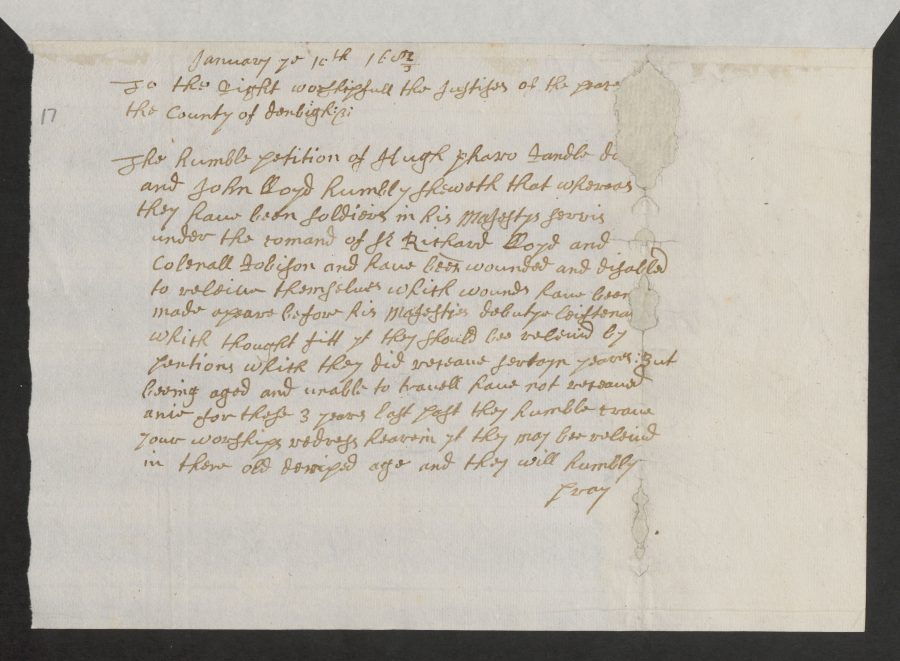 January ye 10th 168 2/3
To the Right worshipfull the Justises of the peace
the County of denbigh:
17
The humble petition of Hugh pharo Randle
and John lloyd humbly sheweth that whereas
they have been soldiers in his Majestys servis
under the comand of Sr Richard lloyd and
Colenall Robison and have been wounded and disabled
to releive themselves which wounds have been
made apeare before his Majesties debutye leiftena
which thought fitt yt they should bee releivd by
pentions which they did receave sertayn yeares: But
beeing aged and unable to travell have not receaved
anie for these 3 years last past they humble crave
your worships redress hearein yt they may bee releivd
in there old age and they will humbly
pray